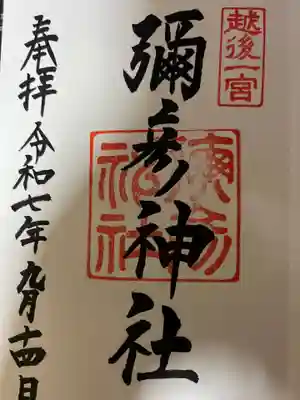 越後一宮
彌彦神社
奉拝 令和七年九月十四日